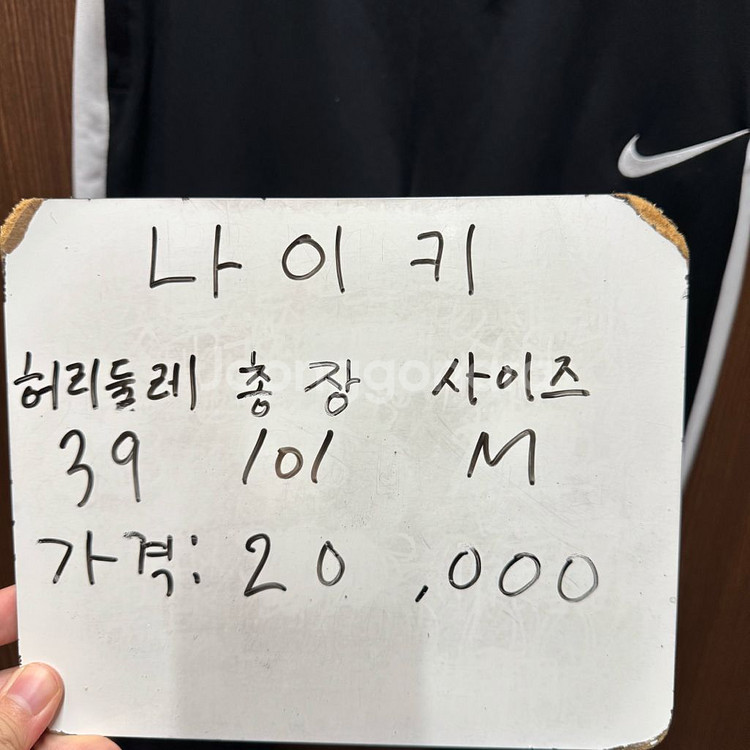 나이키
허리둘레 총장 사이즈
39 101 M
가격: 20,000